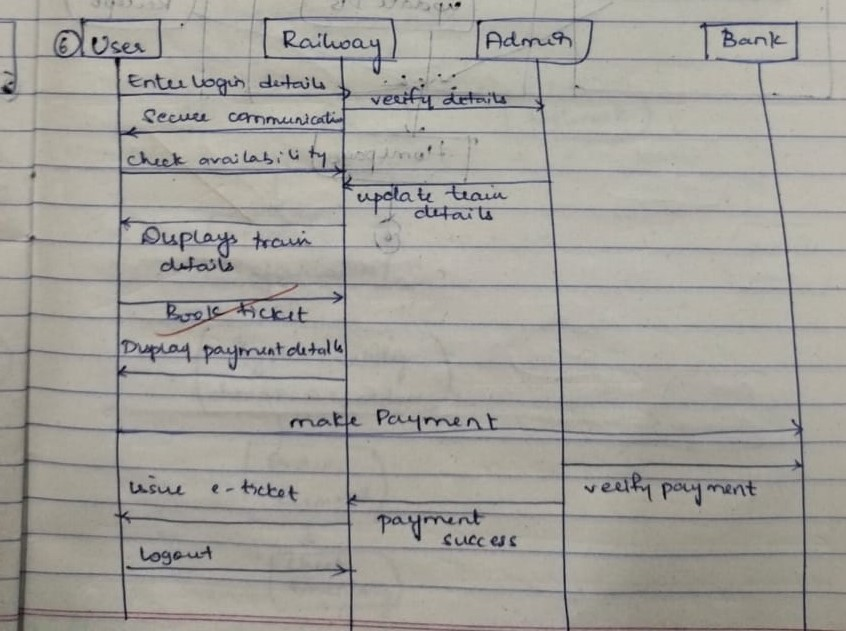 6 User Railway Admin Bank
Enter login details
verify details
Secure communicatin
check availability
update train
details
Displays train
details
Book ticket
Display payment details
make Payment
verify payment
issue e-ticket
payment
success
Logout